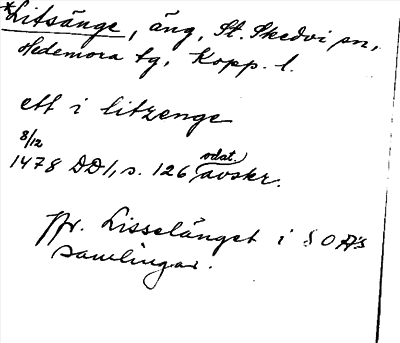 *Litsänge, äng, St. Skedvi sn,
Hedemora tg, Kopp. l.
ett i litzenge
8/12
1478 DD1, s. 126 odat. avskr.
Jfr. Lisselänget i SOA:s
samlingar.